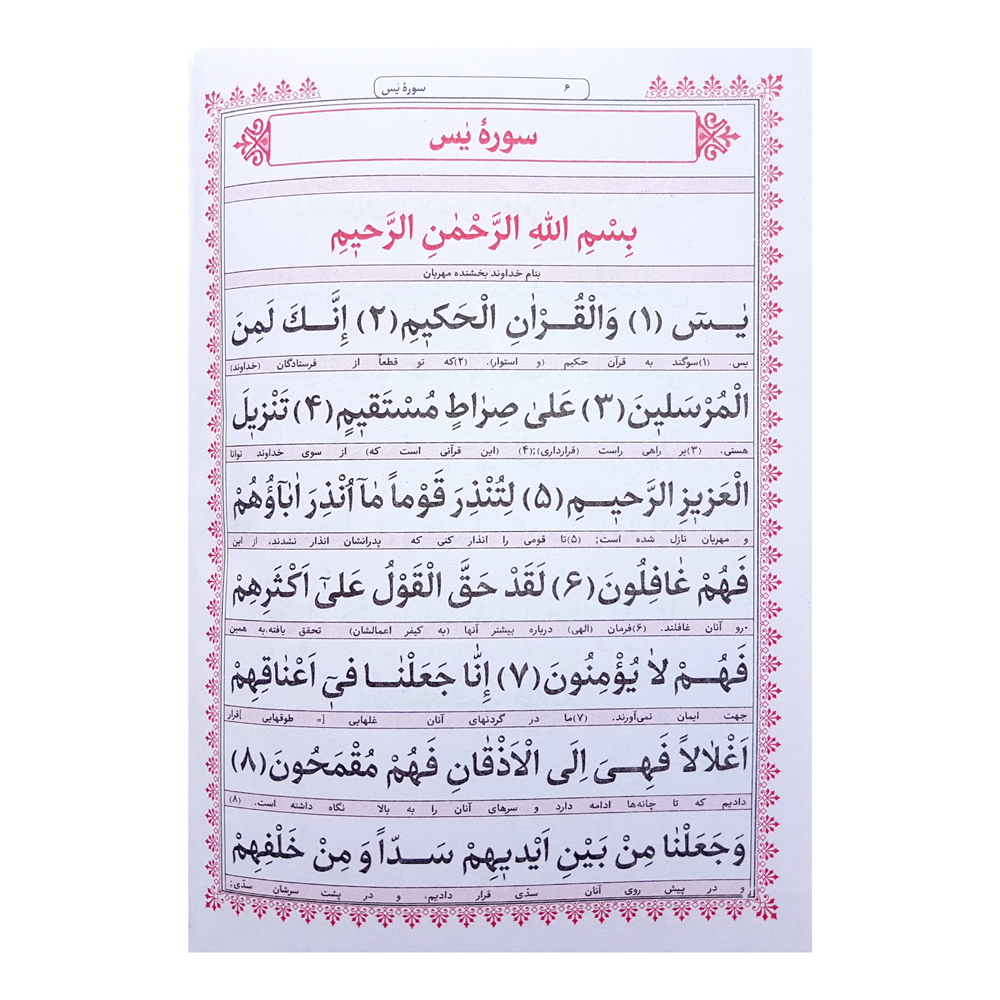 سورهٔ یٰس ۶
سورهٔ یٰس
بِسْمِ اللهِ الرَّحْمٰنِ الرَّحیٖمِ
بنام خداوند بخشنده مهربان
یٰسٓ (۱) وَالْقُرْاٰنِ الْحَکیٖمِ(۲) إِنَّكَ لَمِنَ
یس. (۱)سوگند به قرآن حکیم (و استوار). (۲)که تو قطعاً از فرستادگان (خداوند)
الْمُرْسَلیٖنَ(۳) عَلیٰ صِرٰاطٍ مُسْتَقیٖمٍ(۴) تَنْزیٖلَ
هستی. (۳)بر راهی راست (قرارداری);(۴) (این قرآنی است که) از سوی خداوند توانا
الْعَزیٖزِ الرَّحیٖمِ (۵) لِتُنْذِرَ قَوْماً مٰآ اُنْذِرَ اٰبٰآؤُهُمْ
و مهربان نازل شده است; (۵)تا قومی را انذار کنی که پدرانشان انذار نشدند، از این
فَهُمْ غٰافِلُونَ(۶) لَقَدْ حَقَّ الْقَوْلُ عَلیٰٓ اَکْثَرِهِمْ
رو آنان غافلند. (۶)فرمان (الهی) درباره بیشتر آنها (به کیفر اعمالشان) تحقق یافته،به همین
فَهُمْ لٰا یُؤْمِنُونَ(۷) إِنّٰا جَعَلْنٰا فیٖٓ اَعْنٰاقِهِمْ
جهت ایمان نمی‌آورند. (۷)ما در گردنهای آنان غلهایی [= طوقهایی ]قرار
اَغْلٰالاً فَهِیَ اِلَی الْاَذْقٰانِ فَهُمْ مُقْمَحُونَ(۸)
دادیم که تا چانه‌ها ادامه دارد و سرهای آنان را به بالا نگاه داشته است. (۸)
وَجَعَلْنٰا مِنْ بَیْنِ اَیْدیٖهِمْ سَدّاً وَ مِنْ خَلْفِهِمْ
و در پیش روی آنان سدّی قرار دادیم، و در پشت سرشان سدّی;